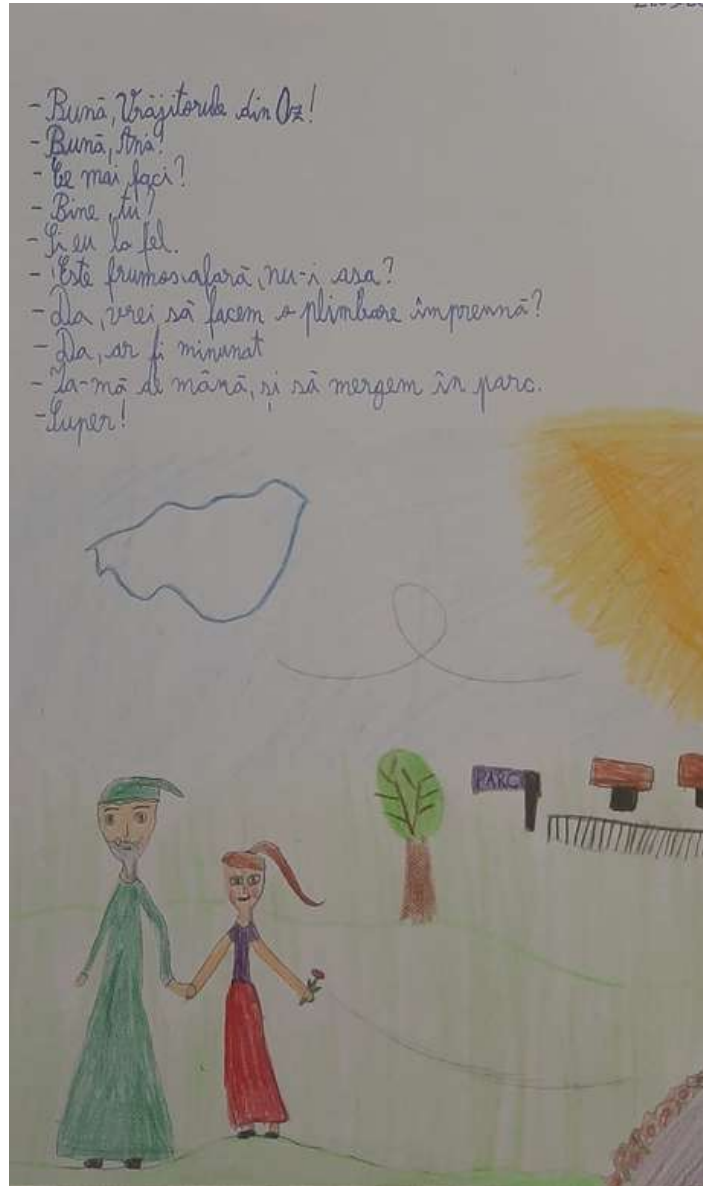 - Bună, Vrăjitorule din Oz!
- Bună, Ana!
- Ce mai faci?
- Bine, tu?
- Și eu la fel.
- Este frumos afară, nu-i asa?
- Da, vrei să facem o plimbare împrennă?
- Da, ar fi minunat
- Ia-mă de mână, și să mergem în parc.
- Super!
PARC